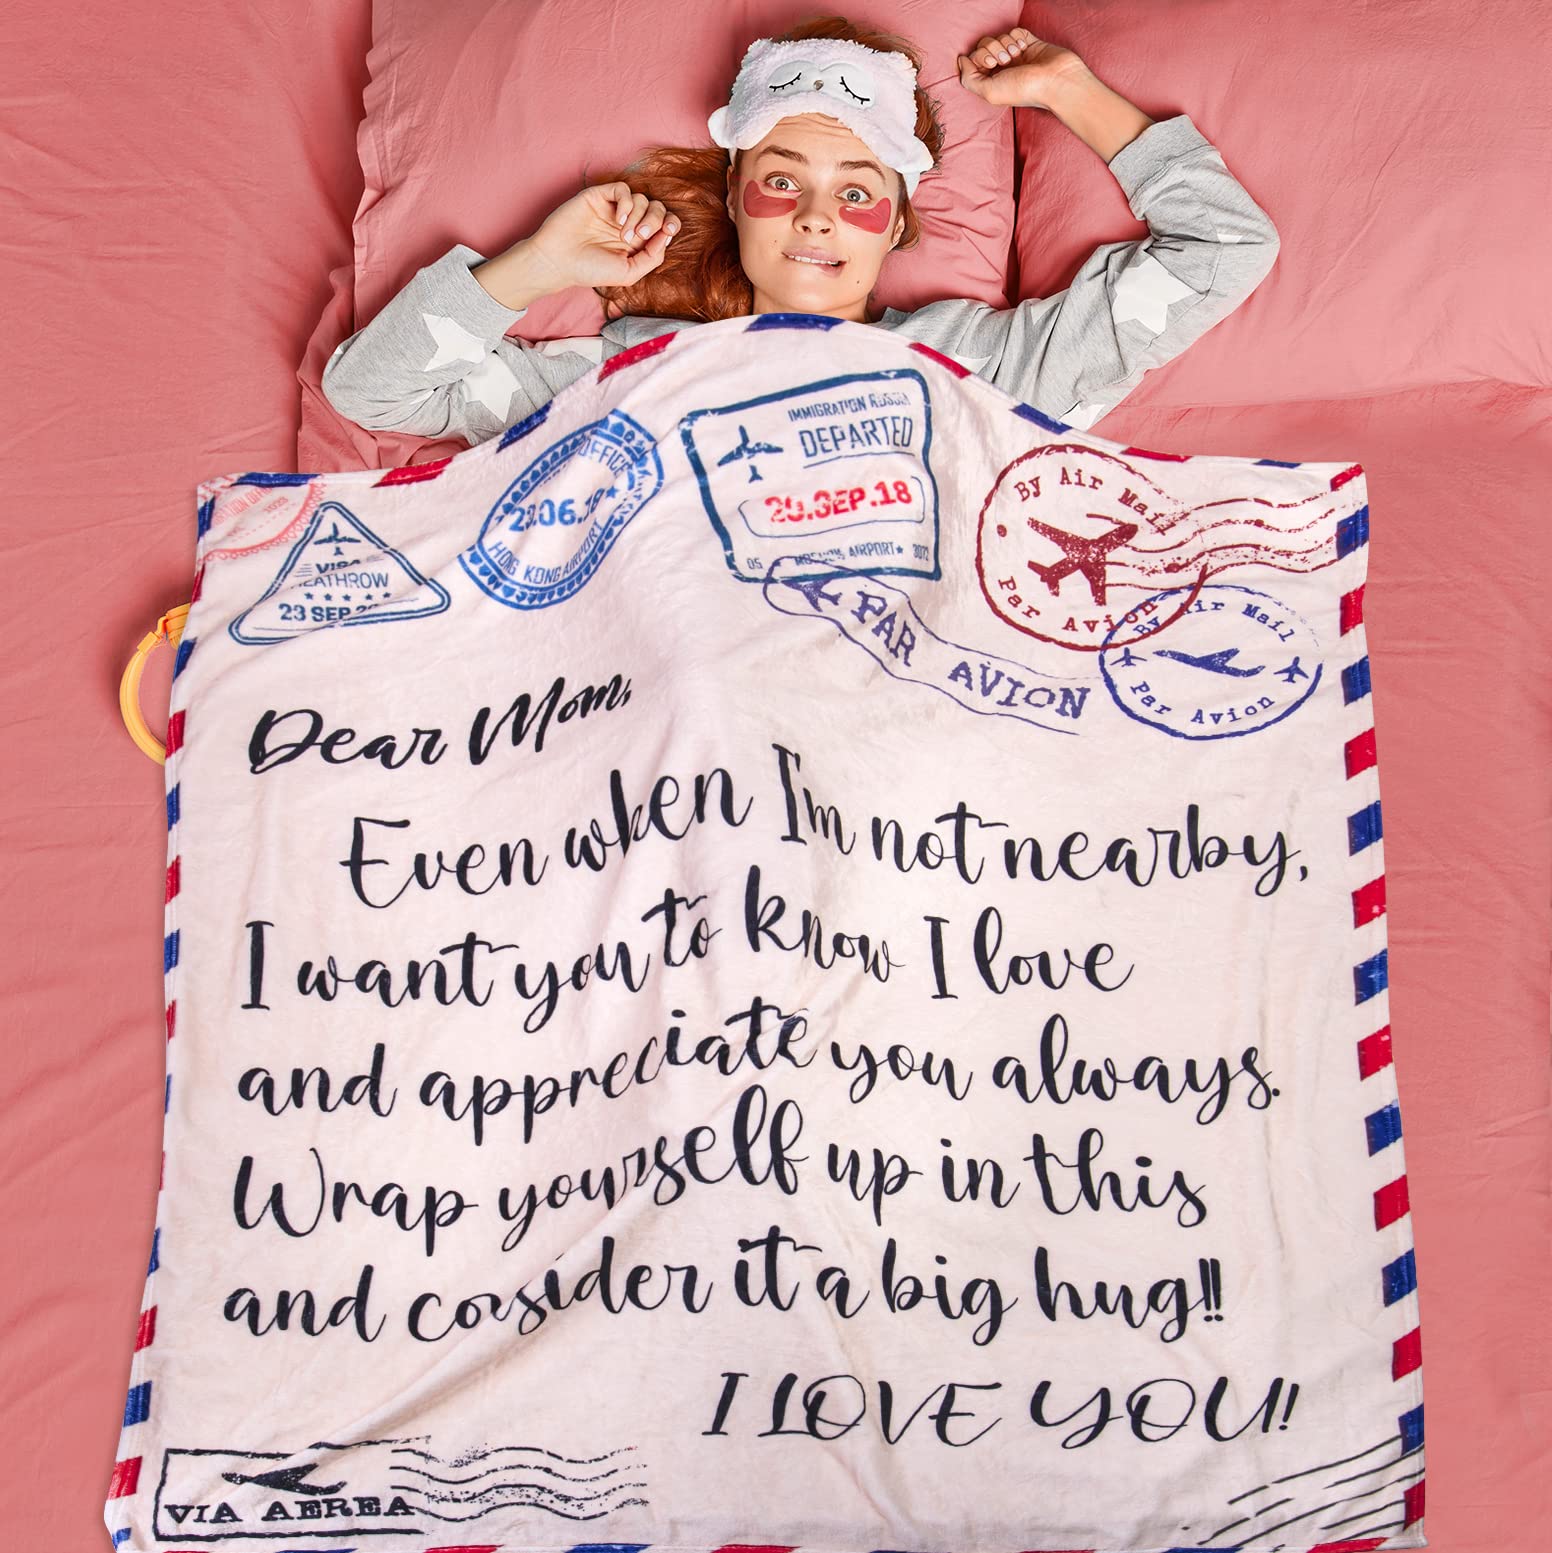 IMMIGRATION RUSSIA
DEPARTED
20.SEP.18
05 AIRPORT★ 3073
OFFICE
06.18★
HONG KONG AIRPORT
VISA
HEATHROW
★★★★★
23 SEP
By Air Mail
Par Avion
PAR AVION
By Air Mail
Par Avion
Dear Mom,
Even when I'm not nearby,
I want you to know I love
and appreciate you always.
Wrap yourself up in this
and cosider it a big hug!!
I LOVE YOU!
VIA AEREA